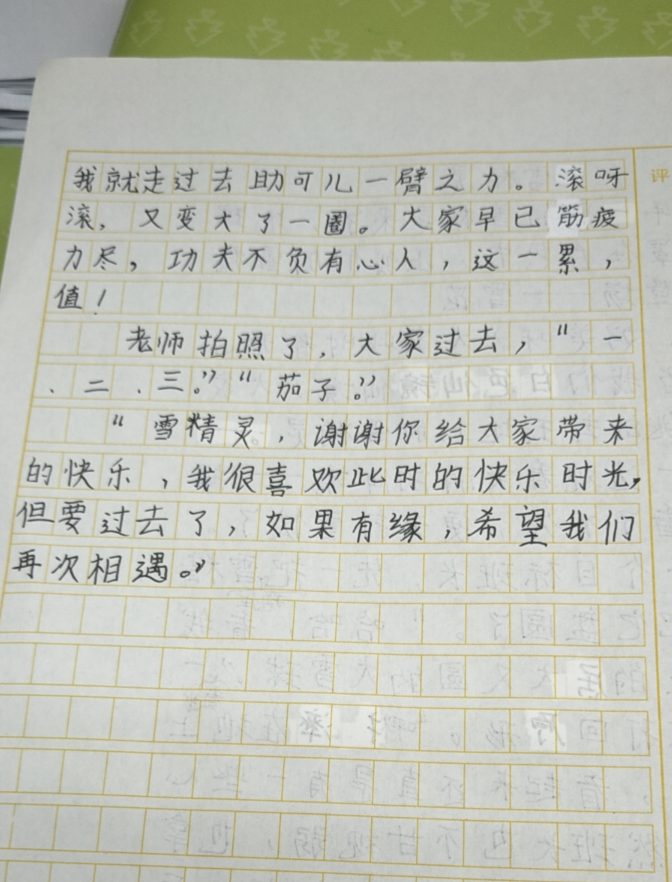 我就走过去助可儿一臂之力。滚呀
滚，又变大了一圈。大家早已筋疲
力尽，功夫不负有心人，这一累，
值！
老师拍照了，大家过去，“一
、二、三。”“茄子。”
“雪精灵，谢谢你给大家带来
的快乐，我很喜欢此时的快乐时光，
但要过去了，如果有缘，希望我们
再次相遇。”
评